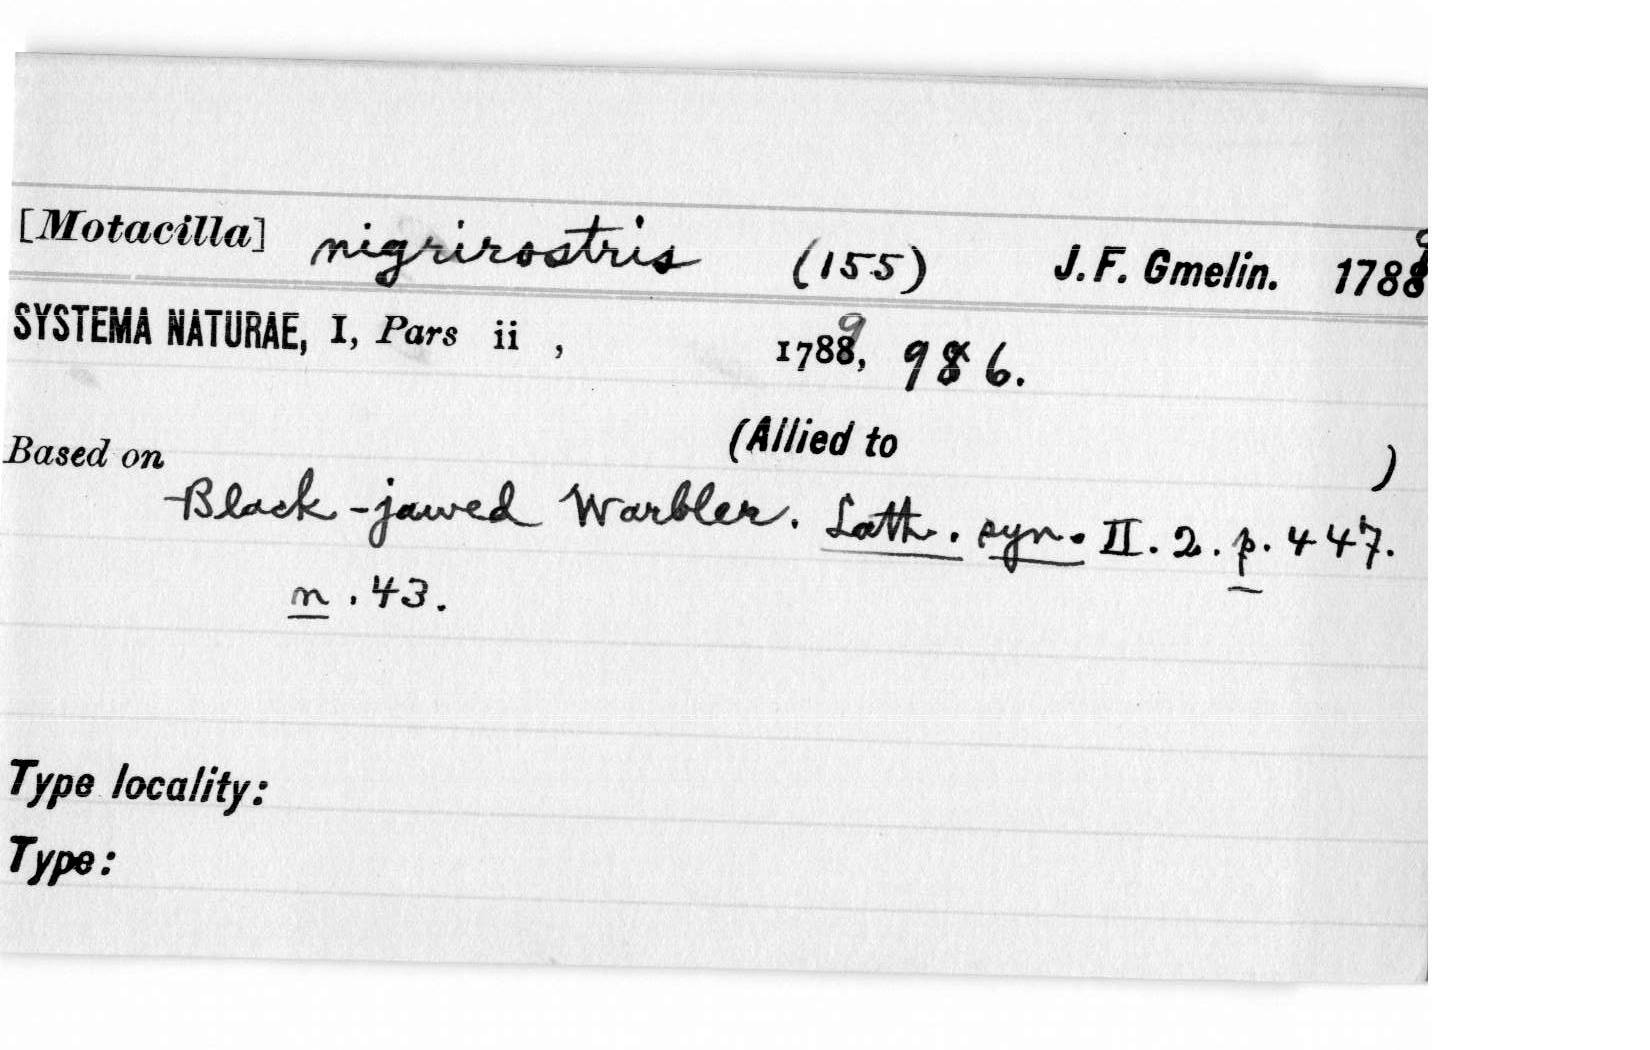 [Motacilla] nigrirostris (155) J. F. Gmelin. 1788 9
SYSTEMA NATURAE, I, Pars ii , 1788, 9 986.
(Allied to )
Based on
Black-jawed Warbler. Lath. syn. II. 2. p. 447.
n. 43.
Type locality:
Type: